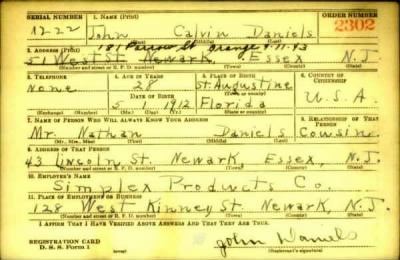 SERIAL NUMBER 1. NAME (Print) ORDER NUMBER
1222 John Calvin Daniels 2302
(First) (Middle) (Last)
181 Orange 7-11-43
2. ADDRESS (Print)
51 West St. Newark, Essex N.J.
(Number and street or R. F. D. number) (Town) (County) (State)
3. TELEPHONE 4. AGE IN YEARS 5. PLACE OF BIRTH 6. COUNTRY OF CITIZENSHIP
None 28 St. Augustine
DATE OF BIRTH (Town or county)
5 1 1912 Florida U.S.A.
(Mo.) (Day) (Yr.) (State or country)
7. NAME OF PERSON WHO WILL ALWAYS KNOW YOUR ADDRESS 8. RELATIONSHIP OF THAT PERSON
Mr. Nathan Daniels Cousin
(Mr., Mrs., Miss) (First) (Middle) (Last)
9. ADDRESS OF THAT PERSON
43 Lincoln St. Newark Essex, N.J.
(Number and street or R. F. D. number) (Town) (County) (State)
10. EMPLOYER'S NAME
Simplex Products Co.
11. PLACE OF EMPLOYMENT OR BUSINESS
128 West Kinney St. Newark, N.J.
(Number and street or R. F. D. number) (Town) (County) (State)
I AFFIRM THAT I HAVE VERIFIED ABOVE ANSWERS AND THAT THEY ARE TRUE.
REGISTRATION CARD
D. S. S. Form 1 (over) John Daniels
(Registrant's signature)